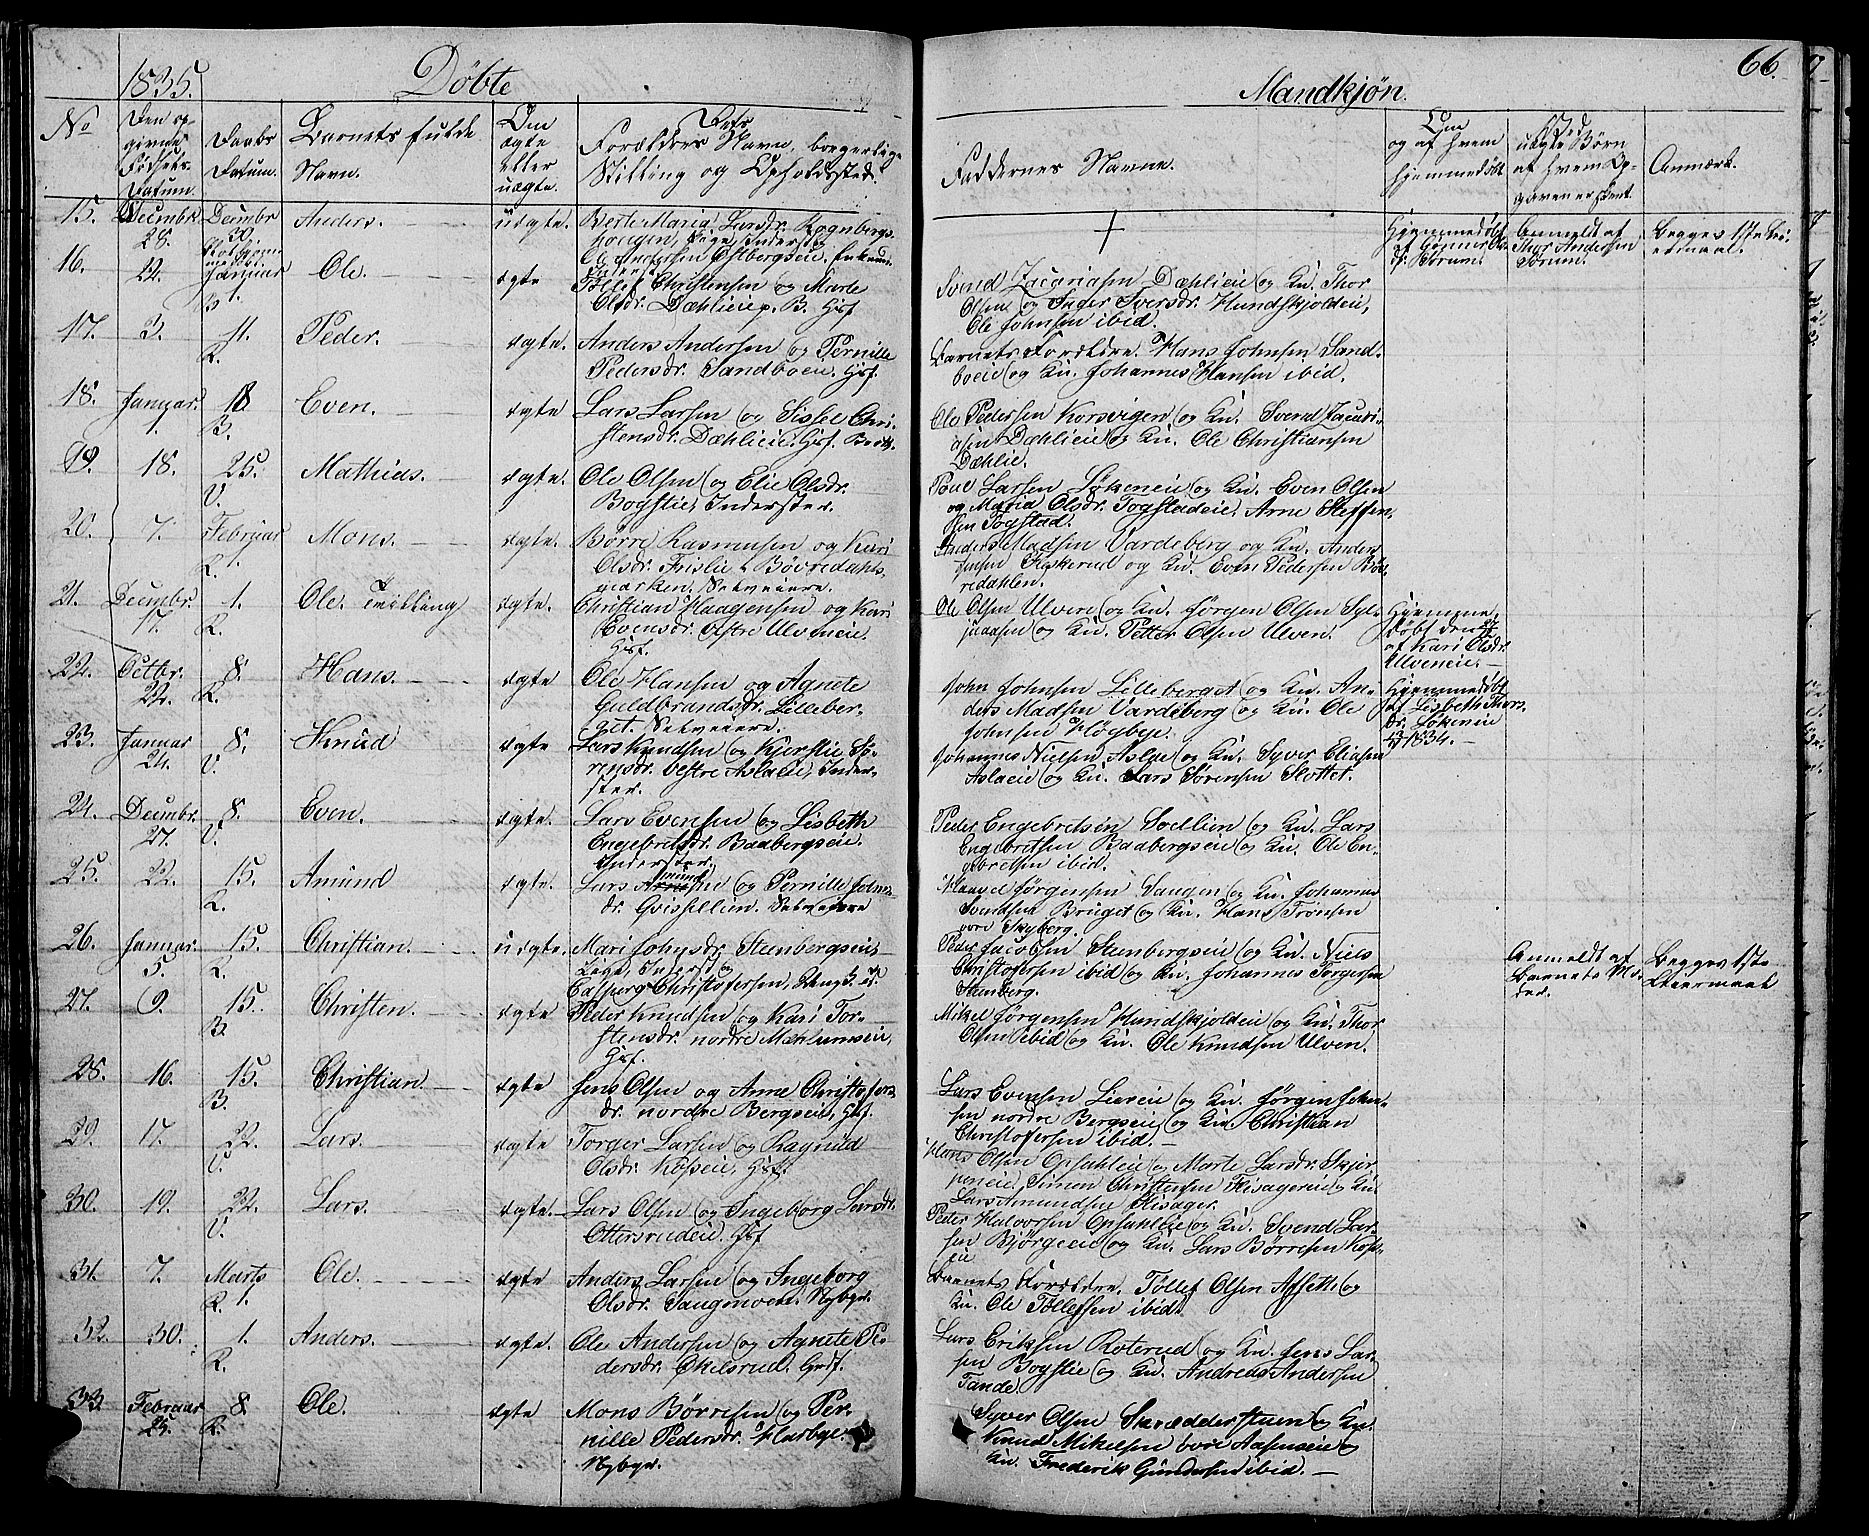 1835.
Döbte
Mandkjön.
66.
No
Den op-
givne
Födsels
Datum.
Daabs
Datum.
Barnets fulde
Navn.
Om
ægte
eller
uægte.
Forældres Navn, borgerlige
Stilling og Opholdsted.
Faddernes Navne.
Om
og af hvem
hjemmedöbt
Ved
uægte Börn
af hvem Op-
gaven er skeet.
Anmærk.
15. Decembr. 28. Decembr 30 Anders. uægte. Berte Maria Larsdr.
Hjemmedöbt
Anmeldt af
Thor Andersen
Begges 1ste
16. 22. Januar 1. B Ole. ægte Tollef Christensen og Marte
Olsdr. Dæhlieie p. B. Hsf
Svend Zacariasen Dæhlieie og Ku. Thor
Olsen og Inger Iversdr. Hundskjoldeie,
Ole Johnsen ibid.
17. 3. 11. R. Peder. ægte. Anders Andersen og Pernille
Pedersdr. Sandboeie. Hsf.
Barnets Forældre. Hans Johnsen Sand-
boeie og Ku. Johannes Hansen ibid.
18. Januar. 1. 18 B. Even. ægte Lars Larsen og Sissel Chri-
stensdr. Dæhlieie. Hsf.
Ole Pedersen Korsvigen og Ku. Svend Zacari-
asen Dæhlieie og Ku. Ole Christiansen
Dæhlie.
19. 18. 25. V. Mathias. ægte. Ole Olsen og Elie Olsdr.
Bogstie, Inderster.
Poul Larsen Lökeneie og Ku. Even Olsen
og Maria Olsdr. Togstadeie. Arne Steffen-
sen Togstad.
20. 7. Februar 1. R. Mons. ægte. Börre Rasmusen og Kari
Olsdr. Frislie i Bövredahls-
marken. Selveiere.
Anders Madsen Vardeberg og Ku. Anders
Jensen Fiskerud og Ku. Even Pedersen Böv-
redahlen.
21. Decembr. 17. 1. R. Ole. Tvilling ægte. Christian Haagensen og Kari
Evensdr. vestre Ulveneie.
Hsf.
Ole Olsen Ulveie og Ku. Jörgen Olsen
og Ku. Petter Olsen Ulven.
Hjemme-
döbt den
af Kari Olsdr.
Ulveneie.
22. Octbr. 22. 8. R. Hans. ægte Ole Hansen og Agnete
Guldbrandsdr. Lilleber-
get. Selveiere.
John Johnsen Lilleberget og Ku. An-
ders Madsen Vardeberg og Ku. Ole
Johnsen Högbye.
Hjemmedöbt
af Lisbeth Thors-
dr. Lökeneie
1834.
23. Januar 24. 8. V. Knud ægte Lars Knudsen og Kjerstie Sö-
rensdr. vestre Aslaeie, Inder-
ster.
Johannes Nielsen Aslae og Ku. Syver Eliasen
Aslaeie og Ku. Lars Sörensen Slottet.
24. Decembr. 27. 8. V. Even. ægte. Lars Evensen og Lisbeth
Engebretsdr. Baabergseie.
Inderster.
Peder Engebretsen Svellien og Ku. Lars
Engebretsen Baabergseie og Ku. Ole En-
gebretsen ibid.
25. 22. 15. R. Amund ægte. Lars Amundsen og Pernille Johns-
dr. Gvissellien. Selveiere
Haavel Jörgensen Saugen og Ku. Johannes
Svendsen Bruget og Ku. Hans Trönsen
övre Skyberg.
26. Januar. 5. 15. R. Christian. uægte. Mari Johnsdr. Steenbergseie,
Casper Christofersen,
Peder Jacobsen Steenbergseie og Ku. Niels
Christofersen ibid og Ku. Johannes Torgersen
Steenberg.
Anmeldt af
Barnets Mo-
der.
Begges 1ste
Leiermaal
27. 9. 15. B. Christen. ægte Peder Knudsen og Kari Tor-
stensdr. nordre Mæhlumseie
Hsf.
Mikel Jörgensen Hundskjoldeie og Ku. Thor
Olsen ibid og Ku. Ole Knudsen Ulven.
28. 16. 15. B. Christian. ægte Jens Olsen og Anne Christofers-
dr. nordre Bergseie, Hsf.
Lars Evensen Lieeie og Ku. Jörgen Jehn-
sen nordre Bergseie og Ku. Christian
Christofersen ibid.
29. 17. 22. V. Lars. ægte Torger Larsen og Ragnild
Olsdr. Kosseie, Hsf
Hans Olsen Opsahleie og Marte Larsdr. Skjer-
peneie, Simen Christensen Hisagereie og Ku.
Lars Amundsen Hisager.
30. 19. 22. V. Lars. ægte. Lars Olsen og Ingeborg Larsdr.
Ottersrudeie. Hsf
Peter Halvorsen Opsahleie og Ku. Svend Lar-
sen Björgeeie og Ku. Lars Börresen Koss-
eie
31. 7. Marts 1. R. Ole. ægte Anders Larsen og Ingeborg
Olsdr. Saugmoeie. Nybgr.
Barnets Forældre. Tollef Olsen Afsett og
Ku. Ole Tollefsen ibid.
32. 30. 1. R. Anders. ægte. Ole Andersen og Agnete Pe-
dersdr. Ekelsrud. Grdf.
Lars Eriksen Roterud og Ku. Jens Lar-
sen Bogslie og Ku. Andreas Andersen
Tande
33. Februar 25. 8. R. Ole. ægte Mons Börresen og Per-
nille Pedersdr. Harbye.
Nybgr.
Syver Olsen Skrædderstuen og Ku.
Knud Mikelsen övre Aasenseie og
Ku. Frederik Gundersen ibid.